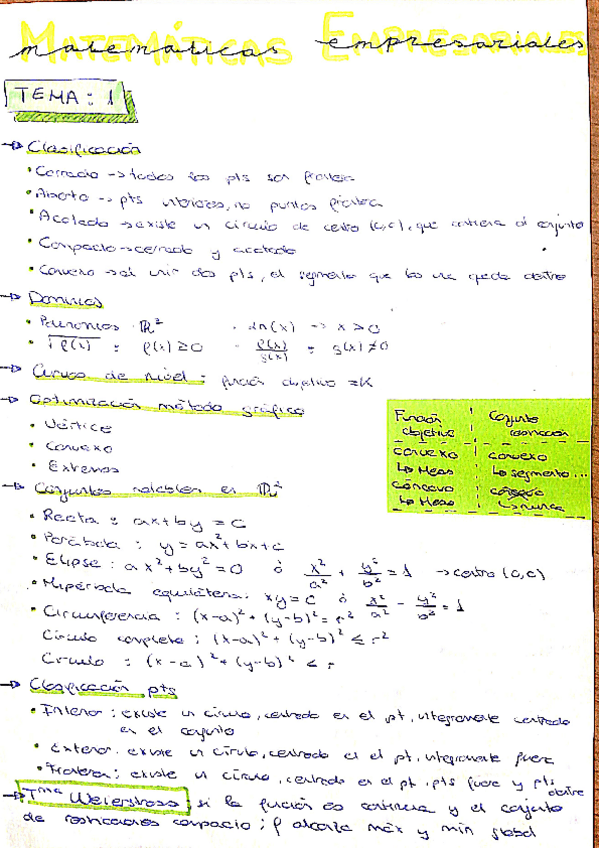 MATEMÁTICAS EMPRESARIALES
matemáticas empresariales
TEMA: 1
→ Clasificación
• Cerrado → todos los pts son frontera
• Abierto → pts interiores, no puntos frontera
• Acotado → existe un círculo de centro (0,0), que contiene al conjunto
• Compacto → cerrado y acotado
• Convexo → al unir dos pts, el segmento que los une queda dentro
→ Dominios
• Polinomios ℝ² · ln(x) → x > 0
• √f(x) : f(x) ≥ 0 - f(x)/g(x) = g(x) ≠ 0
→ Curvas de nivel : función objetivo = K
→ Optimización método gráfico
• Vértice
• Convexo
• Extremos
Función objetivo | Conjunto restricción
convexo | convexo
↳ Meas | ↳ segmento...
cóncavo | convexo
↳ Meas | ↳ nunca
→ Conjuntos notables en ℝ²
• Recta : ax + by = c
• Parábola : y = ax² + bx + c
• Elipse : ax² + by² = 0 ó x²/a² + y²/b² = 1 → centro (0,0)
• Hipérbola equilátera: xy = c ó x²/a² - y²/b² = 1
• Circunferencia : (x-a)² + (y-b)² = r²
Círculo completo : (x-a)² + (y-b)² ≤ r²
Círculo : (x-a)² + (y-b)² ≤ r
→ Clasificación pts
• Interior : existe un círculo, centrado en el pt, íntegramente contenido
en el conjunto
• Exterior : existe un círculo, centrado en el pt, íntegramente fuera
• Frontera : existe un círculo, centrado en el pt, pts fuera y pts dentro
→ Tma Weierstrass : si la función es continua y el conjunto
de restricciones compacto ; f alcanza máx y mín global